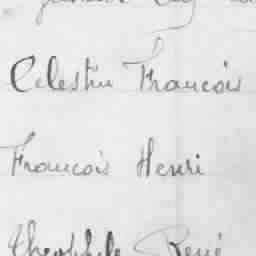 Celestin Francois
Francois Henri
Theophile René